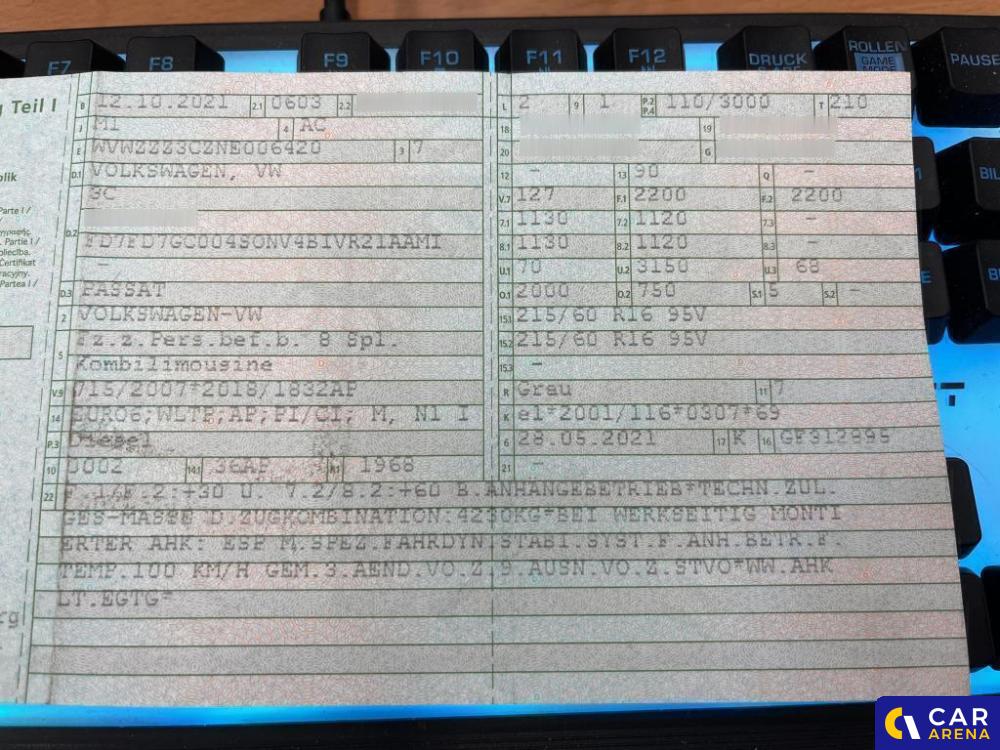 F7 F8 F9 F10 F11 F12 DRUCK ROLLEN PAUSE
GAME
MODE
g Teil I
blik
Parte I /
. Partie I /
Certifikat
racyjny.
Partea I /
B 12.10.2021 2.1 0603 2.2
J M1 4 AC
E WVWZZZ3CZNE006420 3 7
D.1 VOLKSWAGEN, VW
3C
D.2
FD7FD7GC004SONV4B1VR21AAM1
-
D.3 PASSAT
2 VOLKSWAGEN-VW
5 Fz.z.Pers.bef.b. 8 Spl.
Kombilimousine
V.9 715/2007*2018/1832AP
14 EURO6;WLTP;AP;PI/CI; M, N1 I
P.3 Diesel
10 0002 14.1 36AP P.1 1968
L 2 9 1 P.2 P.4 110/3000 T 210
18 19
20 G
12 - 13 90 Q -
V.7 127 F.1 2200 F.2 2200
7.1 1130 7.2 1120 7.3 -
8.1 1130 8.2 1120 8.3 -
U.1 70 U.2 3150 U.3 68
O.1 2000 O.2 750 S.1 5 S.2 -
15.1 215/60 R16 95V
15.2 215/60 R16 95V
15.3 -
R Grau 11 7
K e1*2001/116*0307*69
6 28.05.2021 17 K 16 GF312895
21 -
22 F.1/F.2:+30 U. 7.2/8.2:+60 B.ANHÄNGEBETRIEB*TECHN.ZUL.
GES-MASSE D.ZUGKOMBINATION:4230KG*BEI WERKSEITIG MONTI
ERTER AHK: ESP M.SPEZ.FAHRDYN.STABI.SYST.F.ANH.BETR.F.
TEMP.100 KM/H GEM.3.AEND.VO.Z.9.AUSN.VO.Z.STVO*WW.AHK
LT.EGTG*
CAR
ARENA